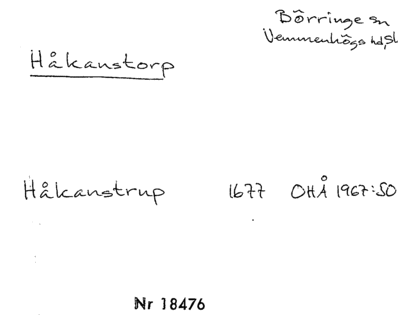 Börringe sn
Vemmenhögs hd, Sk
Håkanstorp
Håkanstrup 1677 OHÅ 1967:50
Nr 18476